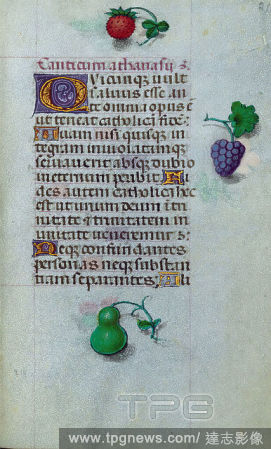 Canticum athanasij s.
Quicunq; vult
saluus esse an
te omnia opus e
ut teneat catholica fide:
Quam nisi quisq; in
tegram inuiolatamq;
seruauerit absq; dubio
in eternum peribit. Fi
des autem catholica hec
est ut unum deum i tri
nitate & trinitatem in
unitate ueneremur s:
Neq; confundantes
personas neq; substan
tiam separantes; Ali
TPG
www.tpgnews.com/達志影像